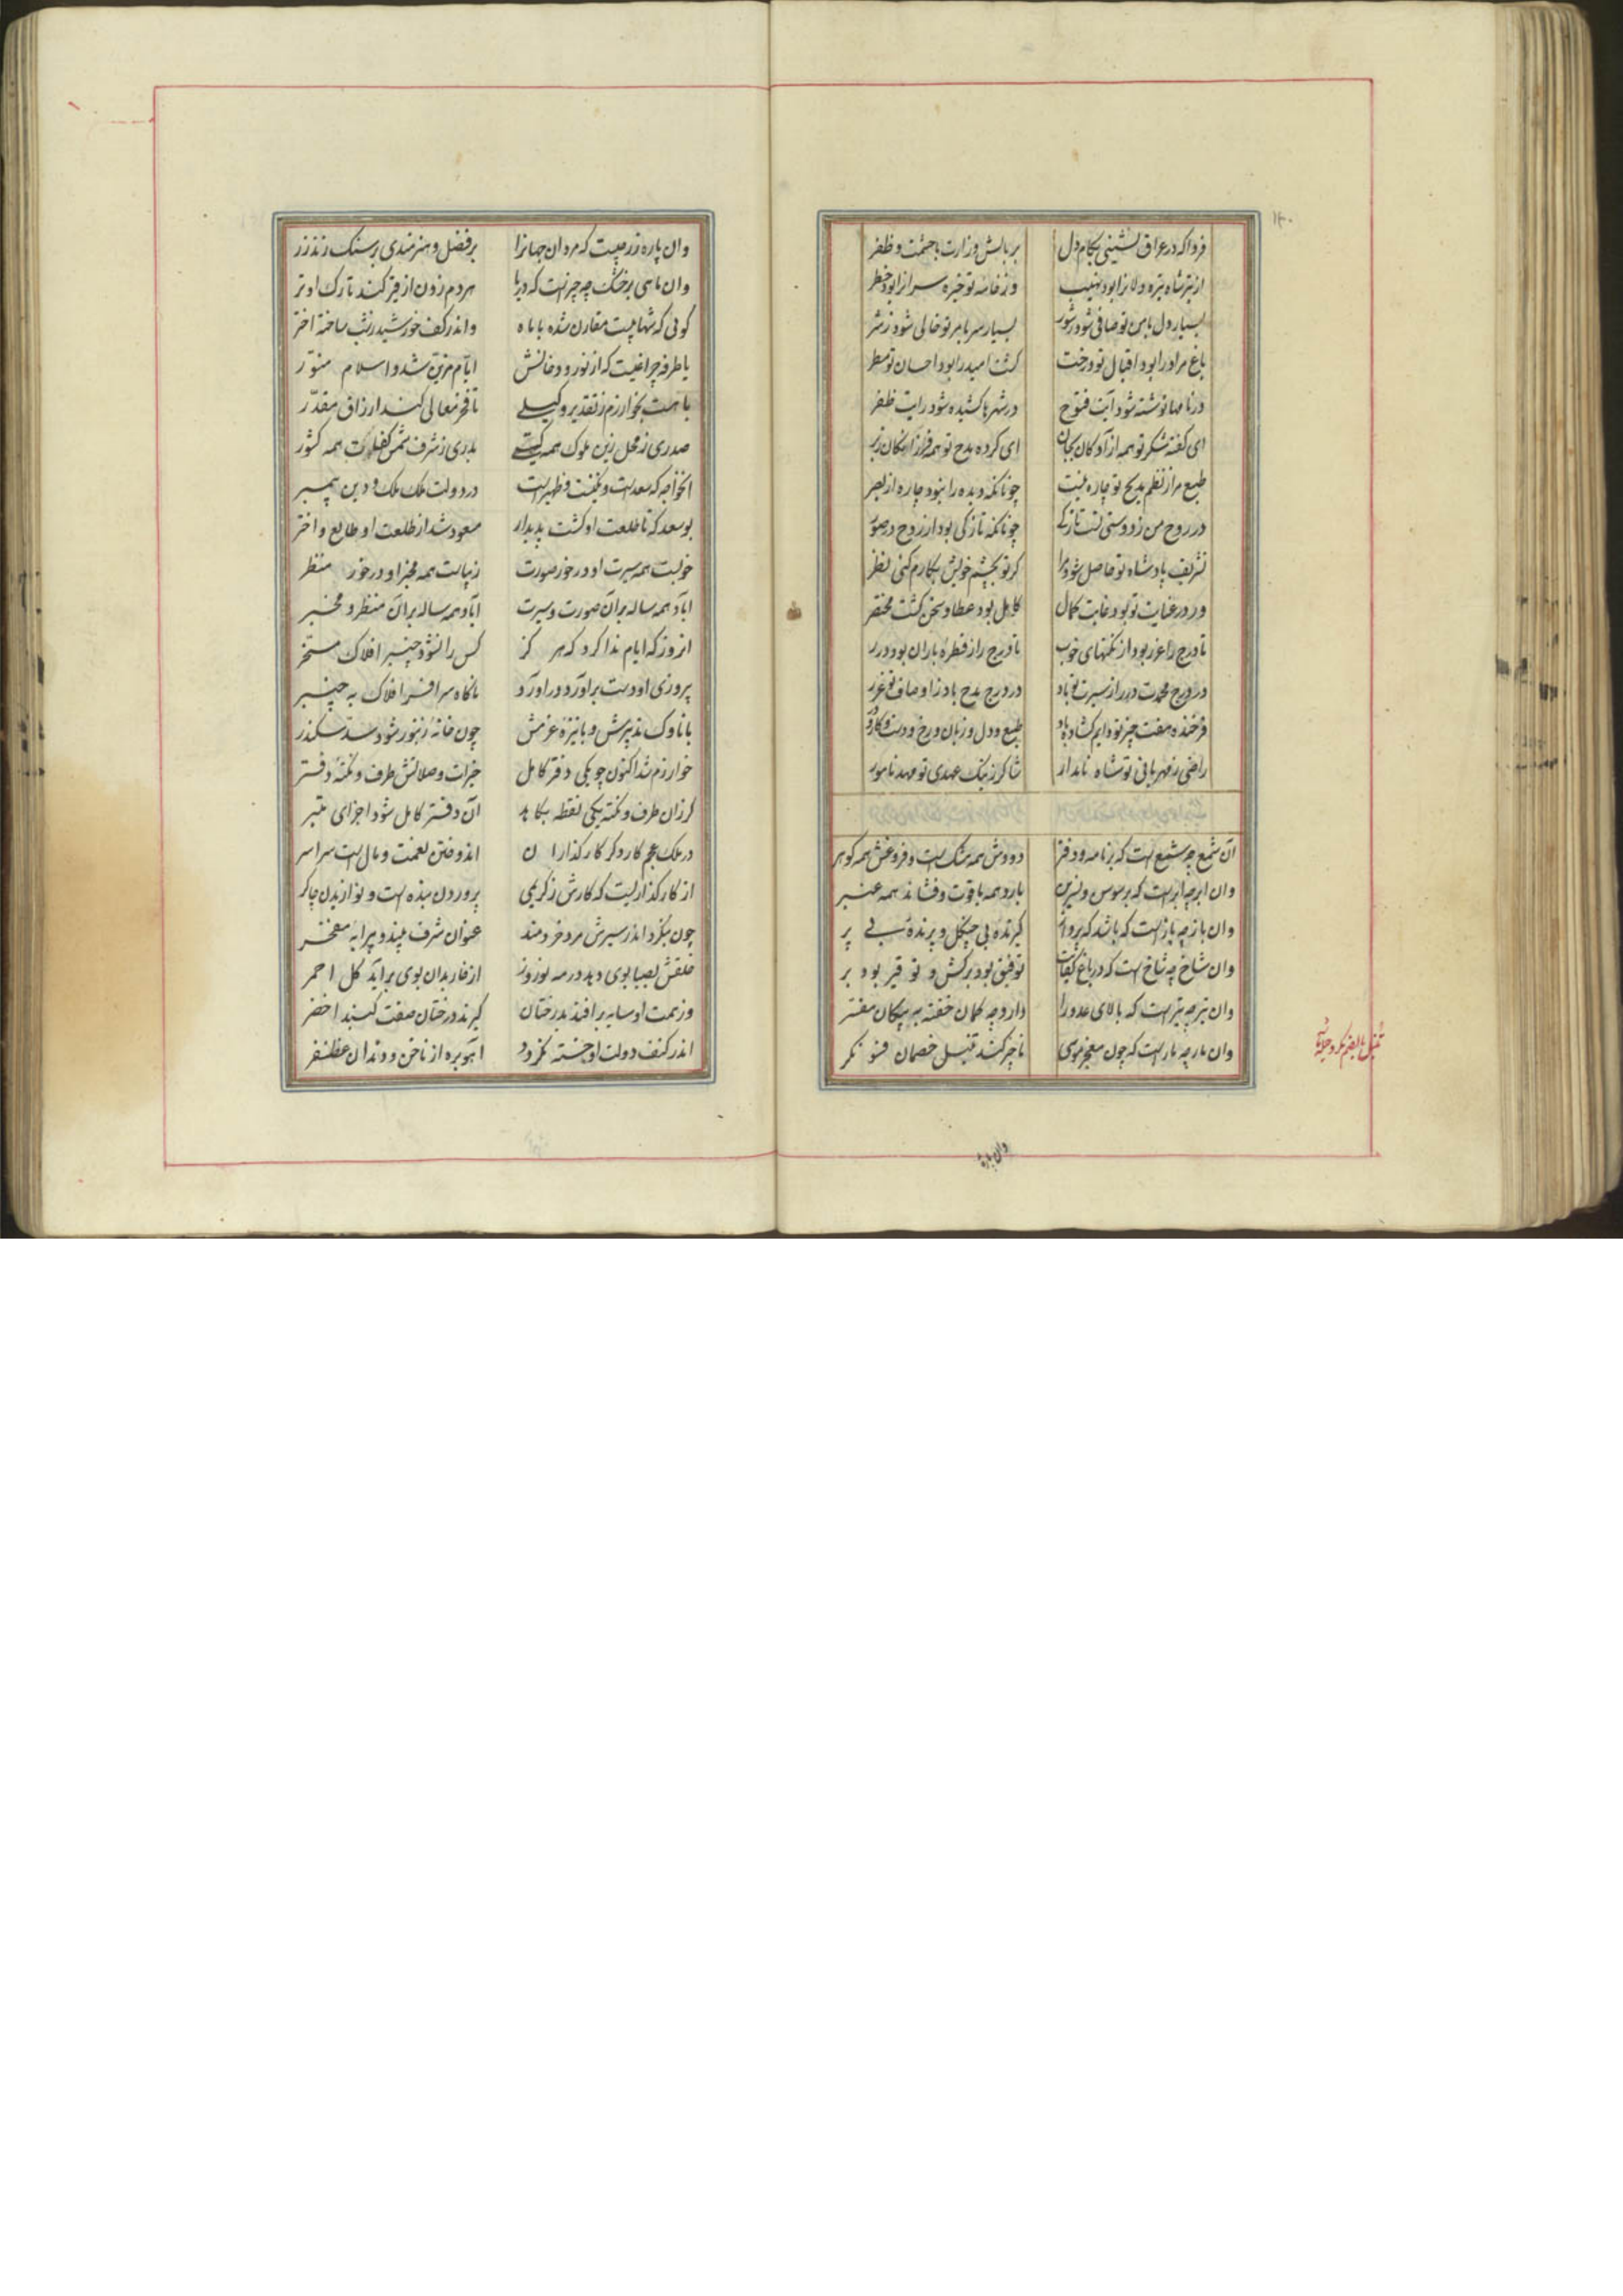 ۱۲۰
فردا که در عراق نشینی بکام دل بر بالش وزارت با حشمت و ظفر
از تیر شاه تیره دلانرا بود نهیب وز خامه تو خیره سرانرا بود خطر
بسیار دل بامن تو صافی شود ز شور بسیار سر بامر تو خالی شود ز شر
باغ مراد را بود اقبال تو درخت کشت امید را بود احسان تو مطر
در نامها نوشته شود آیت فتوح در شهرها کشیده شود رایت ظفر
ای گفته شکر تو همه آزادکان بجان ای کرده مدح تو همه فرزانکان زبر
طبع مرا ز نظم مدیح تو چاره نیست چونانکه دیده را نبود چاره از بصر
در روح من ز دوستی تست تازکی چونانکه تازکی بود از روح در صور
تشریف پادشاه تو حاصل شود مرا کر تو بچشم خویش بکارم کنی نظر
ور در عنایت تو بود غایت کمال کامل بود عطا و سخن کشت مختصر
تا درج را غرر بود از نکتهای خوب تا درج را ز قطره باران بود درر
در درج محمدت درر از سیرت تو باد در درج مدح باد ز اوصاف تو غرر
فرخنده هفت چیز تو دایم کشاده باد طبع و دل و زبان و رخ و دست و کار و در
راضی ز مهربانی تو شاه نامدار شاکر ز نیک عهدی تو صدر نامور
آن شمع چه شمع است که بر نامه و دفتر دودش همه مشک است و فروغش همه کوهر
وان ابر چه ابر است که بر سوسن و نسرین بارد همه یاقوت و فشاند همه عنبر
وان باز چه باز است که باشد که پرواز کیرنده بی چنگل و پرنده بی پر
وان شاخ چه شاخ است که در باغ کفایت توفیق بود برکش و توقیر بود بر
وان تیر چه تیر است که بالای عدو را دارد چو کمان خفته به پیکان مقتر
وان مار چه مار است که چون معجز موسی ناچیز کند تنبل خصمان فسونکر
وان پاره
وان پاره زر چیست که مردان جهانرا بر فضل و هنرمندی بر سنک زند زر
وان ماهی بر خشک چه چیز است که دریا هر دم زدن از قیر کند تارک او تر
کوئی که شهابیست مقارن شده با ماه واندر کف خورشید زشب ساخته اختر
یا طرفه چراغیست که از نور و دخانش ایام مزین شد و اسلام منور
یا هست بخوارزم ز تقدیر وکیلی تا فخر معالی کند ارزاق مقدر
صدری ز محل زین ملوک همه کیتی بدری ز شرف شمس کفات همه کشور
آنخواجه که سعد است و مکینست و ظهیر است در دولت ملک ملک و دین پیمبر
بوسعد که تا طلعت او کشت پدیدار مسعود شد از طلعت او طالع و اختر
خوبست همه سیرت او در خور صورت زیباست همه مخبر او در خور منظر
آباد همه ساله بر آن صورت و سیرت آباد همه ساله بر آن منظر و مخبر
انروز که ایام ندا کرد که هر کز کس را نشود چنبر افلاک مسخر
پیروزی او دست برآورد و درآورد ناکاه سر افسر افلاک به چنبر
با ناوک تدبیرش و با نیزه عزمش چون خانه زنبور شود سد سکندر
خوارزم شد اکنون چو یکی دفتر کامل خیرات و صلاتش طرف و نکته دفتر
کر زان طرف و نکته یکی نقطه بکاهد آن دفتر کامل شود اجزای مبتر
در ملک عجم کار و کر کار کذاران اندوختن نعمت و مال است سراسر
از کار کذاریست که کارش ز کریمی پروردن بنده است و نوازیدن چاکر
چون بنکرد اندر سیرش مرد خردمند عنوان شرف بیند و پیرایه مفخر
خلقش بصبا بوی دهد در مه نوروز از خار بدان بوی برآید کل احمر
وز همت او سایه بر افتد بدرختان کیرند درختان صفت کنبد اخضر
اندر کنف دولت او خسته نکردد آهو بره از ناخن و دندان غضنفر